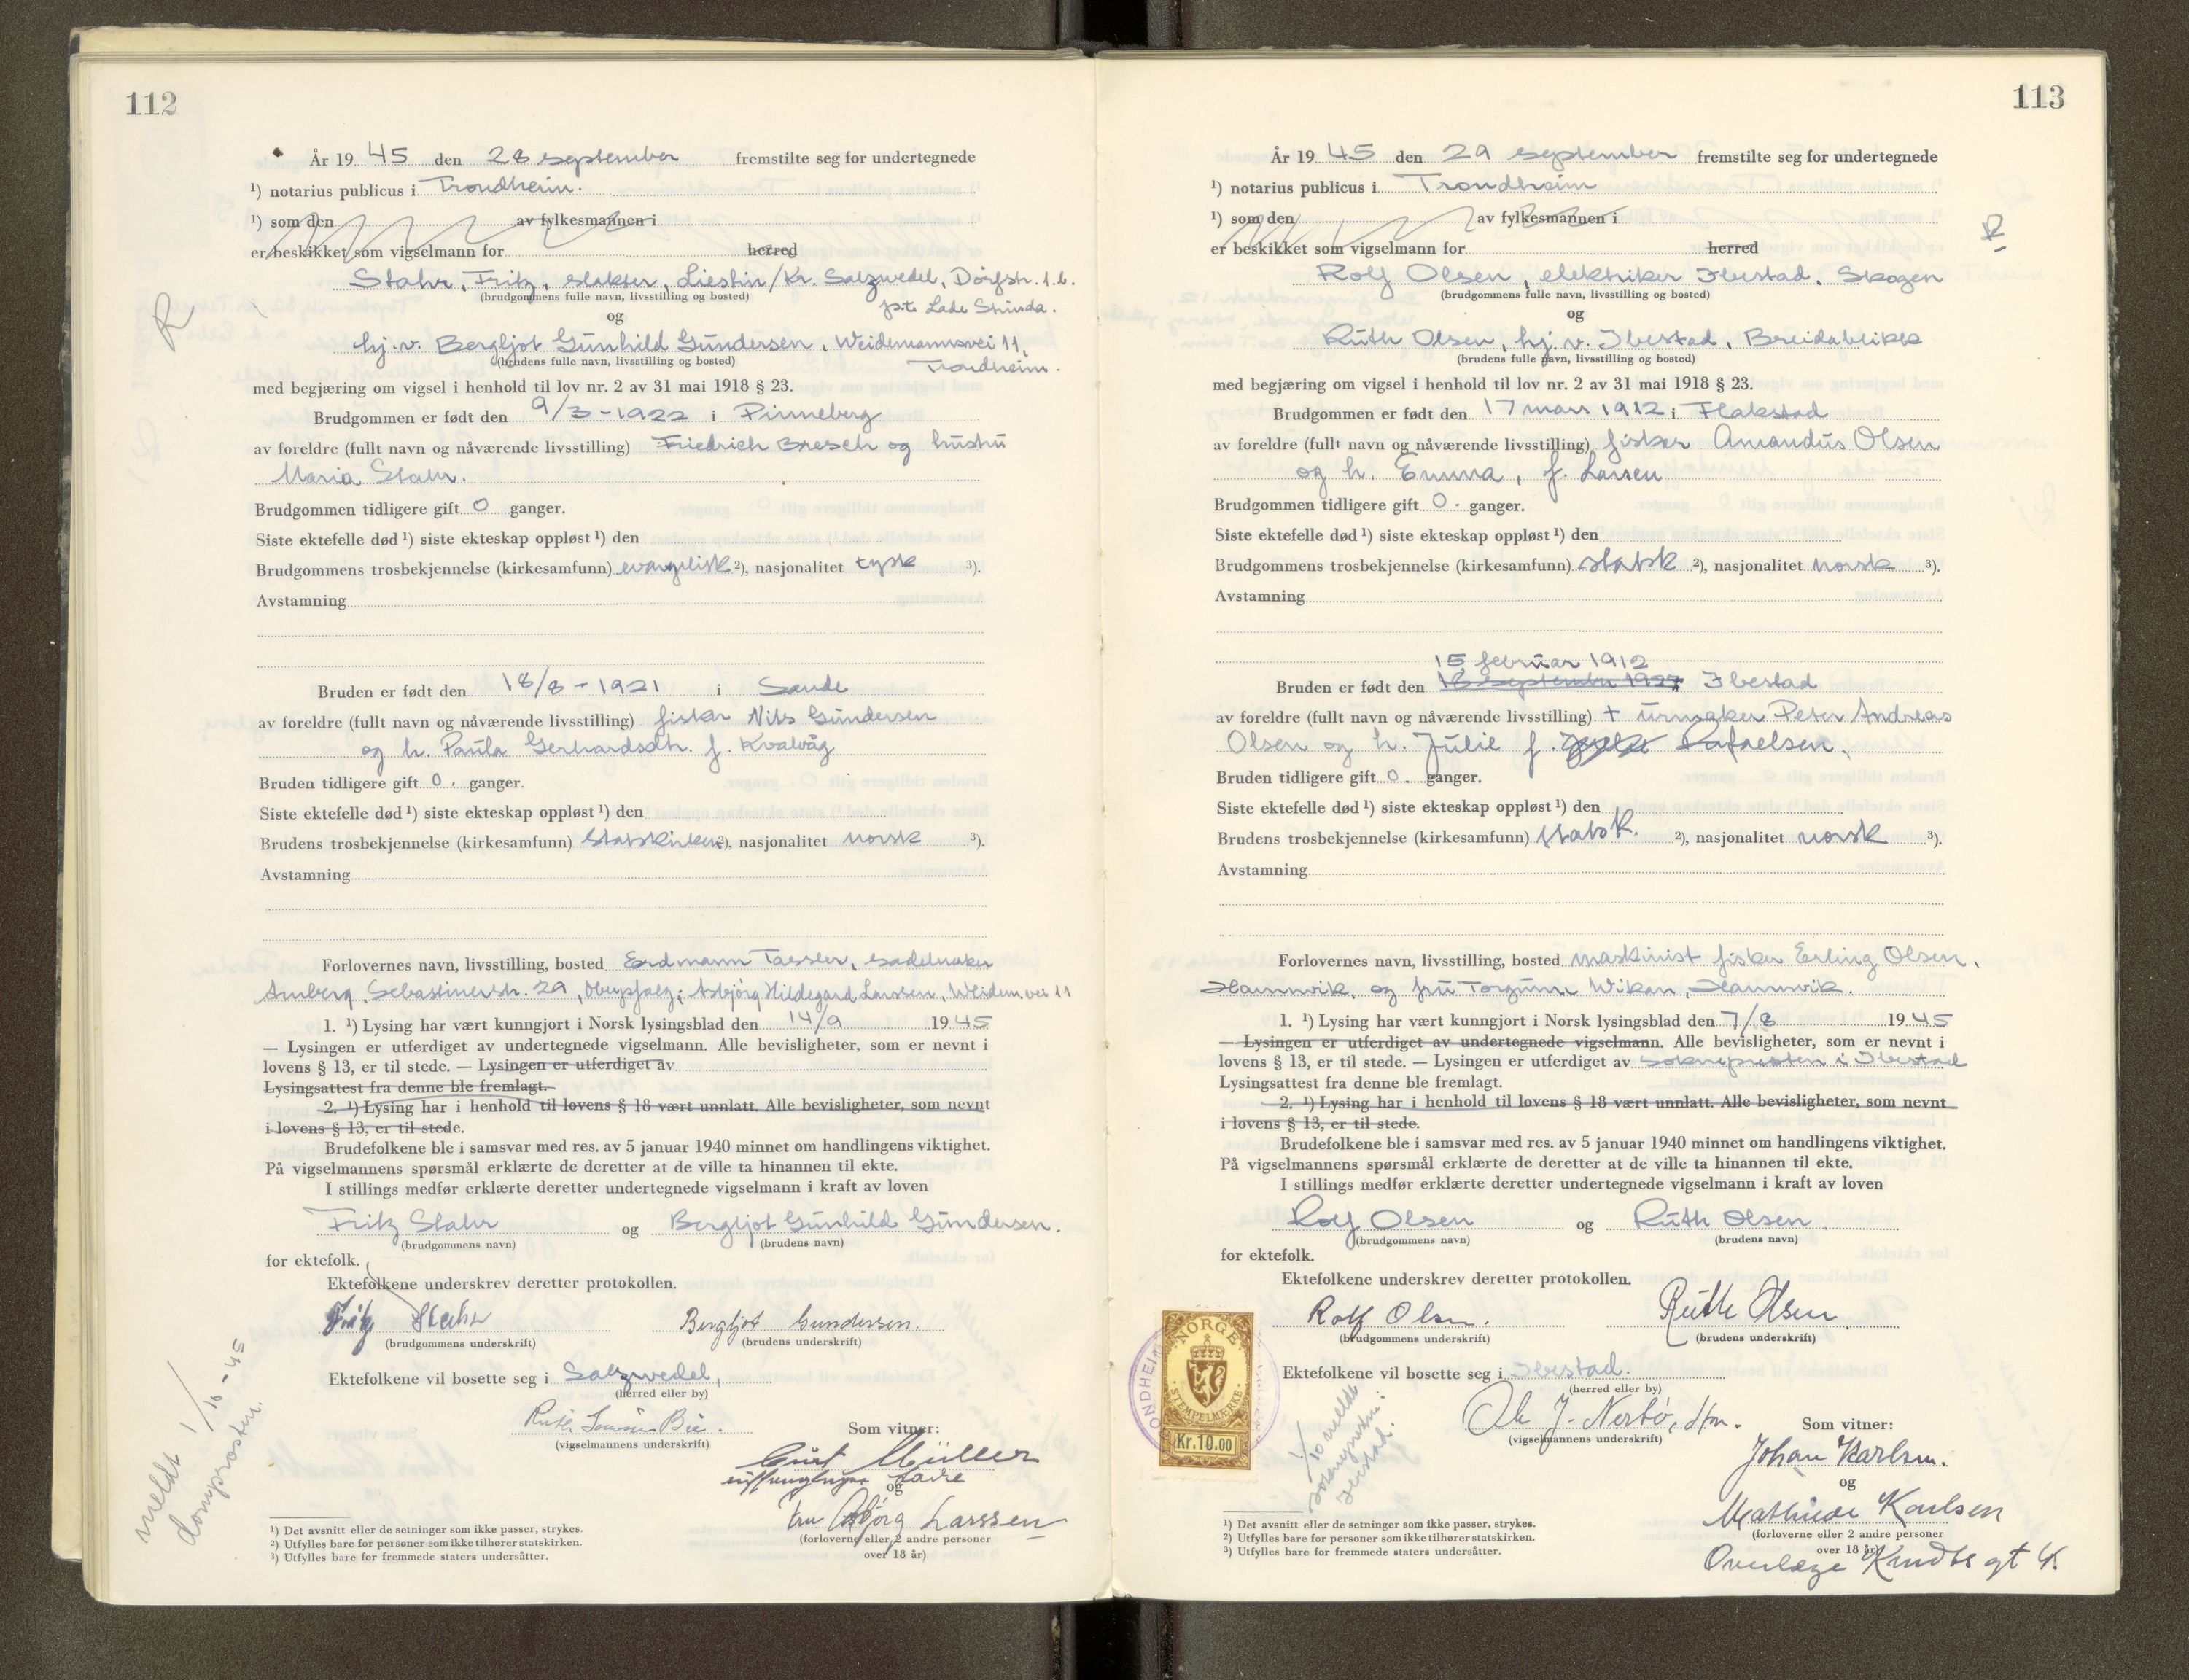 112
År 1945 den 28 september fremstilte seg for undertegnede
¹) notarius publicus i Trondheim.
¹) som den av fylkesmannen i
er beskikket som vigselmann for herred
Stahr, Fritz, slakter, Liestin/Kr. Salzwedel, Dörfstr. 1.b.
(brudgommens fulle navn, livsstilling og bosted)
p.t. Lade Strinda.
og
hj.v. Bergljot Gunhild Gundersen, Weidemannsvei 11,
(brudens fulle navn, livsstilling og bosted)
Trondheim.
R
med begjæring om vigsel i henhold til lov nr. 2 av 31 mai 1918 § 23.
Brudgommen er født den 9/3-1922 i Pinneberg
av foreldre (fullt navn og nåværende livsstilling) Friedrich Bresch og hustru
Maria Stahr.
Brudgommen tidligere gift 0 ganger.
Siste ektefelle død ¹) siste ekteskap oppløst ¹) den
Brudgommens trosbekjennelse (kirkesamfunn) evangelisk ²), nasjonalitet tysk ³).
Avstamning
Bruden er født den 18/8-1921 i Sande
av foreldre (fullt navn og nåværende livsstilling) fisker Nils Gundersen
og h. Paula Gerhardsdtr. f. Kvalvåg
Bruden tidligere gift 0. ganger.
Siste ektefelle død ¹) siste ekteskap oppløst ¹) den
Brudens trosbekjennelse (kirkesamfunn) Statskirken ²), nasjonalitet norsk ³).
Avstamning
Forlovernes navn, livsstilling, bosted Erdmann Tassler, sadelmaker
Amberg, Sebastinerstr. 29, Oberpfalz; Asbjørg Hildegard Larssen, Weidem.vei 11
1. ¹) Lysing har vært kunngjort i Norsk lysingsblad den 14/9 1945
— Lysingen er utferdiget av undertegnede vigselmann. Alle bevisligheter, som er nevnt i
lovens § 13, er til stede. — Lysingen er utferdiget av
Lysingsattest fra denne ble fremlagt.
2. ¹) Lysing har i henhold til lovens § 18 vært unnlatt. Alle bevisligheter, som nevnt
i lovens § 13, er til stede.
Brudefolkene ble i samsvar med res. av 5 januar 1940 minnet om handlingens viktighet.
På vigselmannens spørsmål erklærte de deretter at de ville ta hinannen til ekte.
I stillings medfør erklærte deretter undertegnede vigselmann i kraft av loven
Fritz Stahr og Bergljot Gunhild Gundersen.
(brudgommens navn) (brudens navn)
for ektefolk.
Ektefolkene underskrev deretter protokollen.
Fritz Stahr Bergljot Gundersen.
(brudgommens underskrift) (brudens underskrift)
Ektefolkene vil bosette seg i Salzwedel,
(herred eller by)
(vigselmannens underskrift)
Som vitner:
Curt Müller
Lade
og
Fru Asbjørg Larssen
(forloverne eller 2 andre personer
over 18 år)
meldt 1/10-45
domprosten.
¹) Det avsnitt eller de setninger som ikke passer, strykes.
²) Utfylles bare for personer som ikke tilhører statskirken.
³) Utfylles bare for fremmede staters undersåtter.
113
År 1945 den 29 september fremstilte seg for undertegnede
¹) notarius publicus i Trondheim
¹) som den av fylkesmannen i
R
er beskikket som vigselmann for herred
Rolf Olsen, elektriker Ibestad, Skogen
(brudgommens fulle navn, livsstilling og bosted)
og
Ruth Olsen, hj.v. Ibestad, Breidablikk
(brudens fulle navn, livsstilling og bosted)
med begjæring om vigsel i henhold til lov nr. 2 av 31 mai 1918 § 23.
Brudgommen er født den 17 mars 1912 i Flakstad
av foreldre (fullt navn og nåværende livsstilling) fisker Amandus Olsen
og h. Emma, f. Larsen
Brudgommen tidligere gift 0. ganger.
Siste ektefelle død ¹) siste ekteskap oppløst ¹) den
Brudgommens trosbekjennelse (kirkesamfunn) statsk ²), nasjonalitet norsk ³).
Avstamning
15 februar 1912
Bruden er født den 18 september 1927 Ibestad
av foreldre (fullt navn og nåværende livsstilling) + urmaker Peter Andreas
Olsen og h. Julie f. Rafaelsen.
Bruden tidligere gift 0. ganger.
Siste ektefelle død ¹) siste ekteskap oppløst ¹) den
Brudens trosbekjennelse (kirkesamfunn) statsk. ²), nasjonalitet norsk ³).
Avstamning
Forlovernes navn, livsstilling, bosted maskinist fisker Erling Olsen,
Hamnvik, og fru Torgunn Wikan, Hamnvik.
1. ¹) Lysing har vært kunngjort i Norsk lysingsblad den 7/8 1945
— Lysingen er utferdiget av undertegnede vigselmann. Alle bevisligheter, som er nevnt i
lovens § 13, er til stede. — Lysingen er utferdiget av soknepresten i Ibestad
Lysingsattest fra denne ble fremlagt.
2. ¹) Lysing har i henhold til lovens § 18 vært unnlatt. Alle bevisligheter, som nevnt
i lovens § 13, er til stede.
Brudefolkene ble i samsvar med res. av 5 januar 1940 minnet om handlingens viktighet.
På vigselmannens spørsmål erklærte de deretter at de ville ta hinannen til ekte.
I stillings medfør erklærte deretter undertegnede vigselmann i kraft av loven
Rolf Olsen og Ruth Olsen.
(brudgommens navn) (brudens navn)
for ektefolk.
Ektefolkene underskrev deretter protokollen.
Rolf Olsen. Ruth Olsen.
(brudgommens underskrift) (brudens underskrift)
Ektefolkene vil bosette seg i Ibestad.
(herred eller by)
Ole J. Nerbö, dfm.
(vigselmannens underskrift)
Som vitner:
Johan Karlsen.
og
Mathilde Karlsen
(forloverne eller 2 andre personer
over 18 år)
Overlæge Kindts gt 4.
NORGE
STEMPELMERKE
Kr.10.00
1/10 meldt
soknepresten i
Ibestad.
¹) Det avsnitt eller de setninger som ikke passer, strykes.
²) Utfylles bare for personer som ikke tilhører statskirken.
³) Utfylles bare for fremmede staters undersåtter.